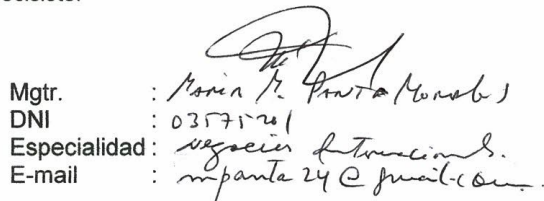 Mgtr. : María M. Panta Morales
DNI : 03575201
Especialidad : negocios Internacionals.
E-mail : mpanta24@gmail.com.